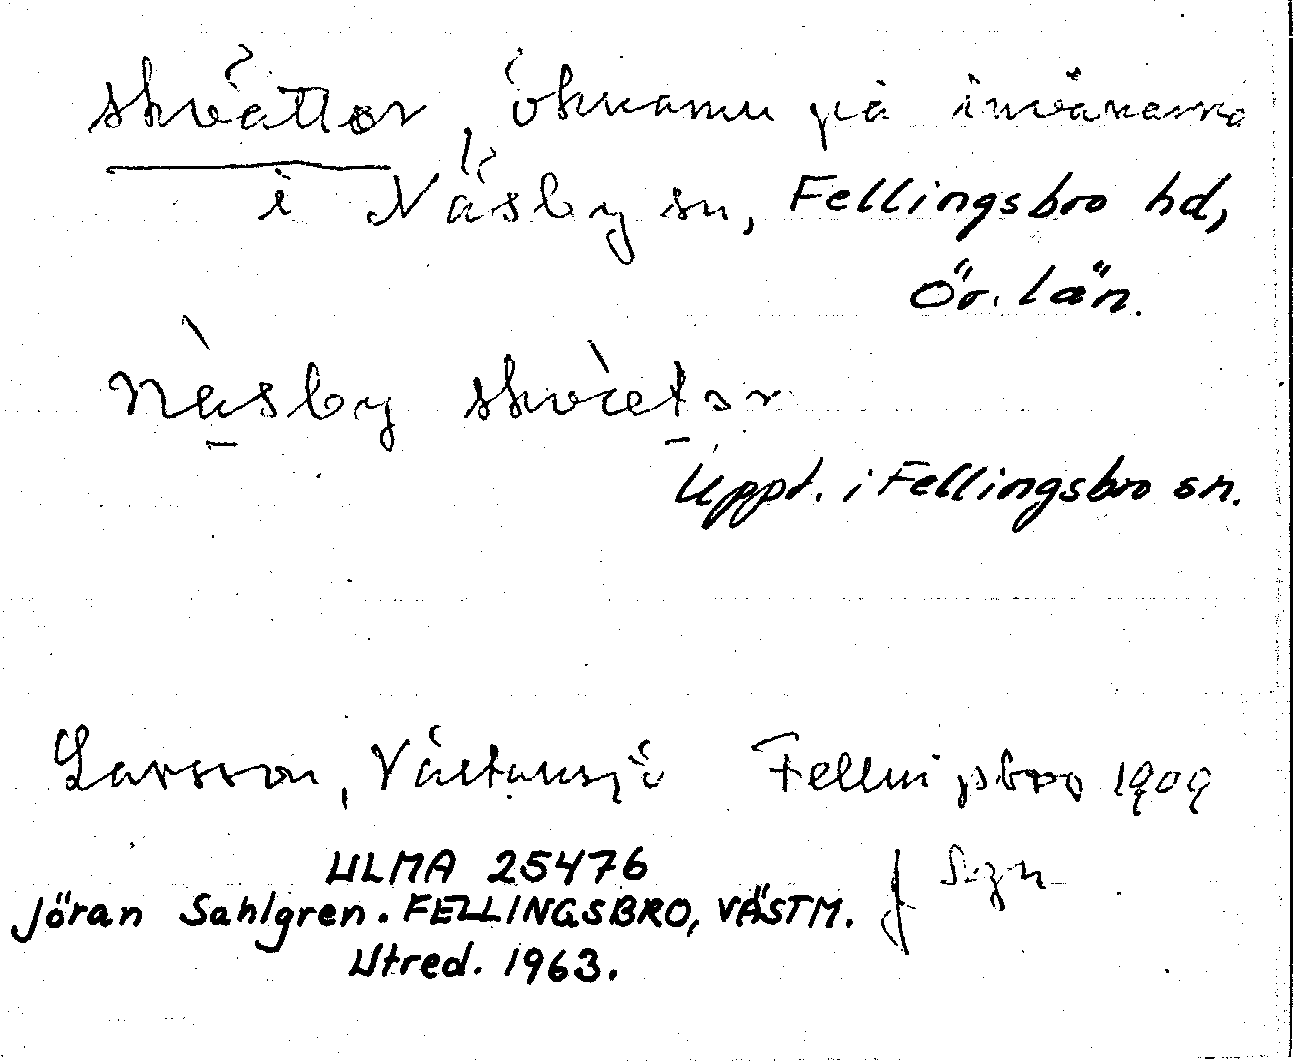 skvättor, öknamn på invånarna
i Näsby sn, Fellingsbro hd,
Ör. län.
Näsby skvætor
Uppt. i Fellingsbro sn.
Larsson, Västansjö Fellingsbro 1909
J Sgn
ULMA 25476
Jöran Sahlgren. FELLINGSBRO, VÄSTM.
Utred. 1963.